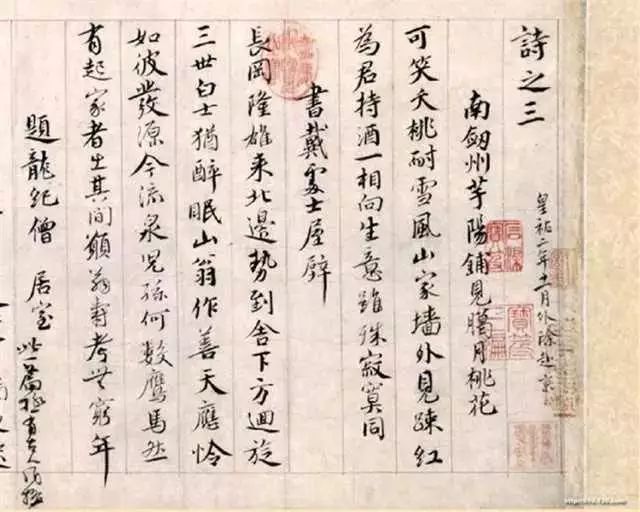 詩之三
皇祐二年十一月外除赴京
南劔州芋陽鋪見臈月桃花
可笑夭桃耐雪風山家墻外見疎紅
為君持酒一相向生意雖殊寂寞同
書戴處士屋壁
長岡隆雄來北邊勢到舍下方迴旋
三世白士猶醉眠山翁作善天應怜
如彼發源今流泉兒孫何數鷹馬然
有起家者出其間願翁壽考無窮年
題龍紀僧居室
此一篇極有古人風格